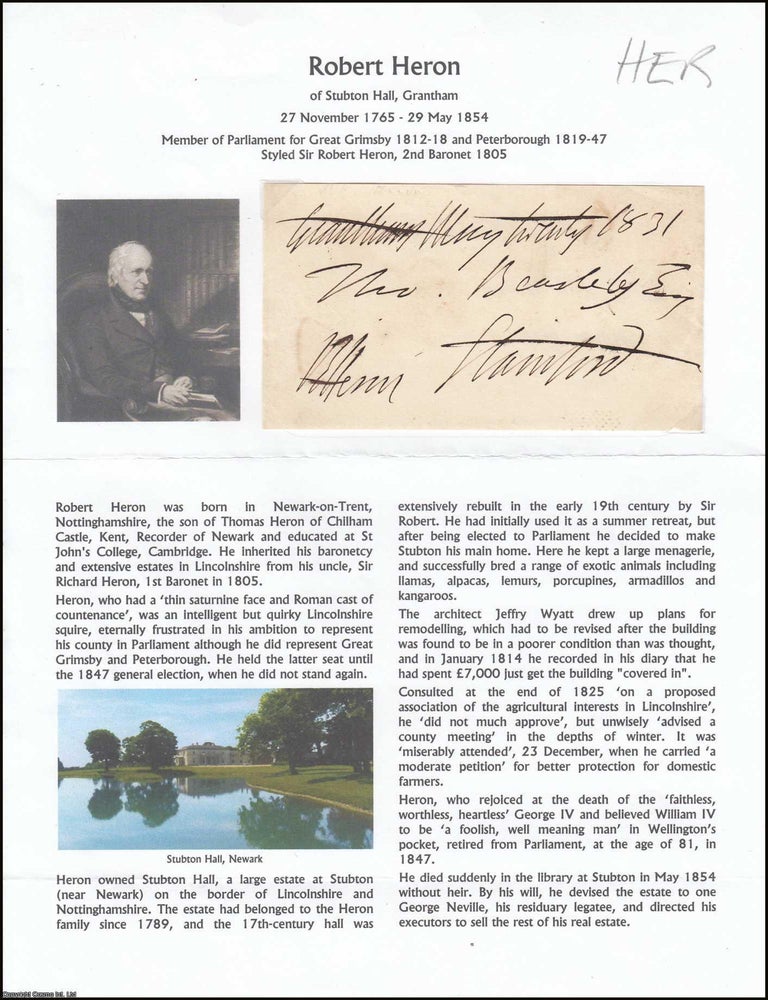 Robert Heron
HER
of Stubton Hall, Grantham
27 November 1765 - 29 May 1854
Member of Parliament for Great Grimsby 1812-18 and Peterborough 1819-47
Styled Sir Robert Heron, 2nd Baronet 1805
Grantham May twenty 1831
Tho. Beasley Esq
RHeron Stamford
Robert Heron was born in Newark-on-Trent,
Nottinghamshire, the son of Thomas Heron of Chilham
Castle, Kent, Recorder of Newark and educated at St
John's College, Cambridge. He inherited his baronetcy
and extensive estates in Lincolnshire from his uncle, Sir
Richard Heron, 1st Baronet in 1805.
Heron, who had a 'thin saturnine face and Roman cast of
countenance', was an intelligent but quirky Lincolnshire
squire, eternally frustrated in his ambition to represent
his county in Parliament although he did represent Great
Grimsby and Peterborough. He held the latter seat until
the 1847 general election, when he did not stand again.
Stubton Hall, Newark
Heron owned Stubton Hall, a large estate at Stubton
(near Newark) on the border of Lincolnshire and
Nottinghamshire. The estate had belonged to the Heron
family since 1789, and the 17th-century hall was
extensively rebuilt in the early 19th century by Sir
Robert. He had initially used it as a summer retreat, but
after being elected to Parliament he decided to make
Stubton his main home. Here he kept a large menagerie,
and successfully bred a range of exotic animals including
llamas, alpacas, lemurs, porcupines, armadillos and
kangaroos.
The architect Jeffry Wyatt drew up plans for
remodelling, which had to be revised after the building
was found to be in a poorer condition than was thought,
and in January 1814 he recorded in his diary that he
had spent £7,000 just get the building "covered in".
Consulted at the end of 1825 'on a proposed
association of the agricultural interests in Lincolnshire',
he 'did not much approve', but unwisely 'advised a
county meeting' in the depths of winter. It was
'miserably attended', 23 December, when he carried 'a
moderate petition' for better protection for domestic
farmers.
Heron, who rejoiced at the death of the 'faithless,
worthless, heartless' George IV and believed William IV
to be 'a foolish, well meaning man' in Wellington's
pocket, retired from Parliament, at the age of 81, in
1847.
He died suddenly in the library at Stubton in May 1854
without heir. By his will, he devised the estate to one
George Neville, his residuary legatee, and directed his
executors to sell the rest of his real estate.
Copyright Cosmo Int. Ltd